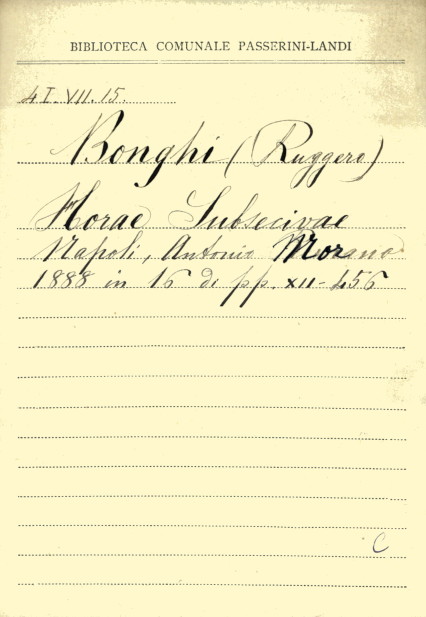 BIBLIOTECA COMUNALE PASSERINI-LANDI
4 I. VII. 15.
Bonghi (Ruggero)
Horae Subsecivae
Napoli, Antonio Morano
1888 in 16 de pp. XII - 456
C